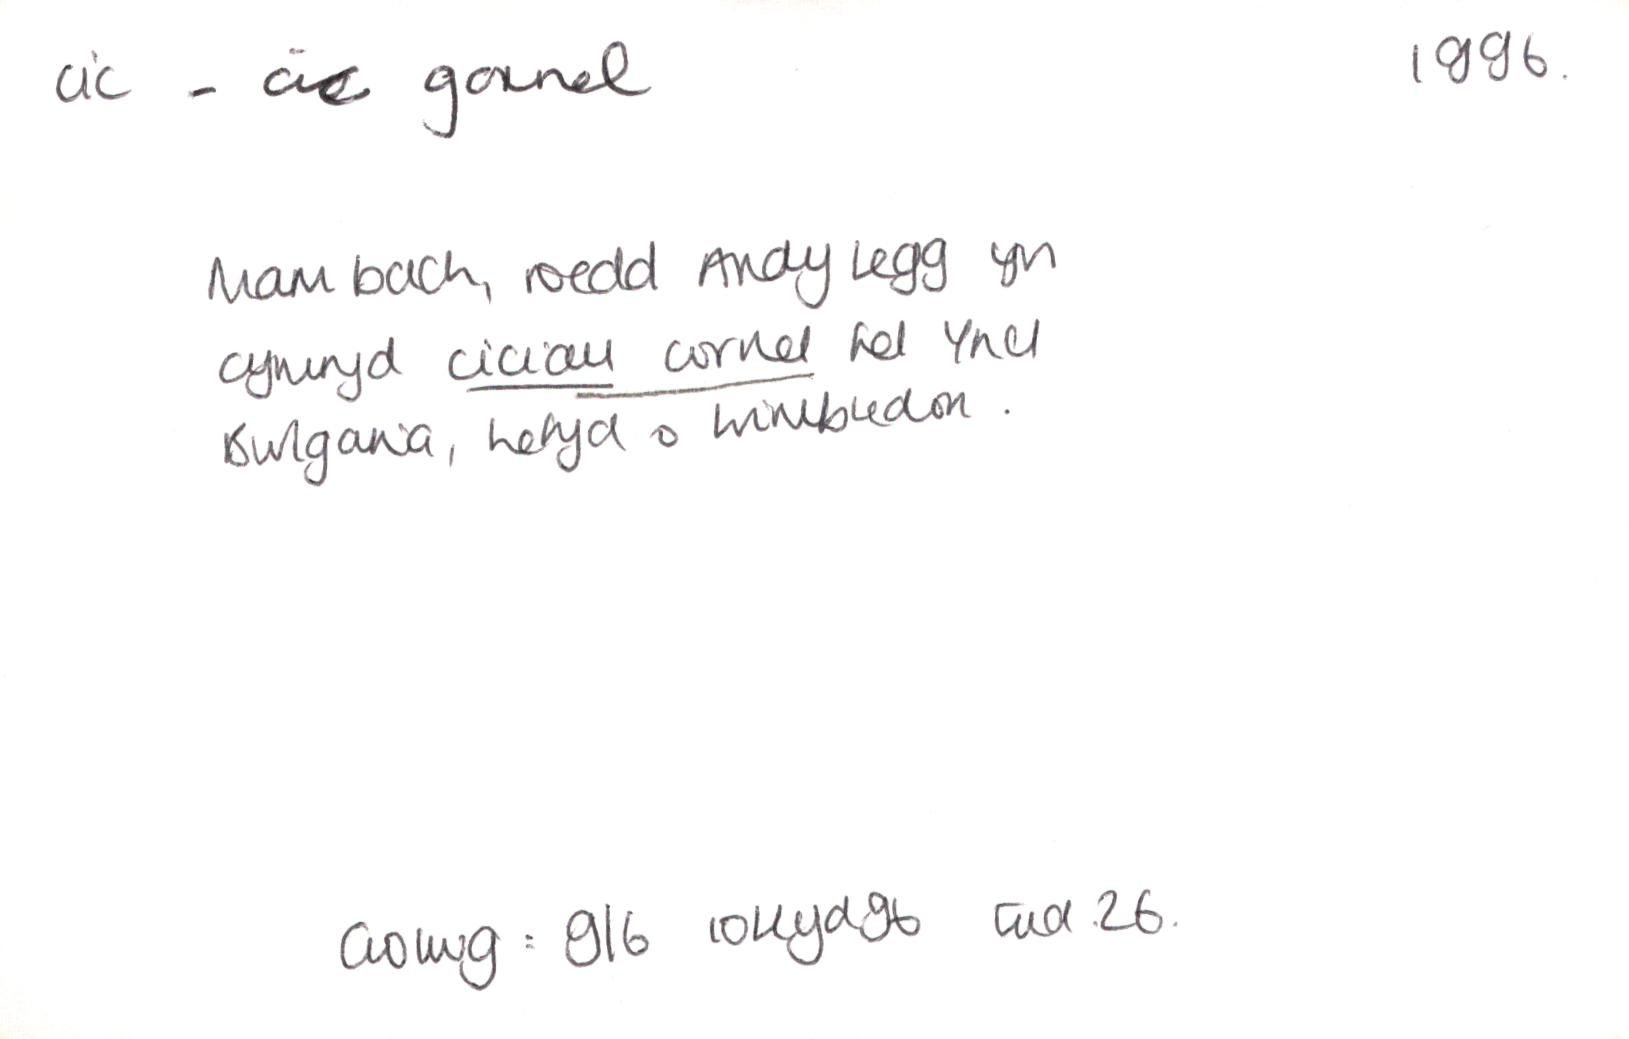 cic - cic gornel 1996.
Mam bach, roedd Andy Legg yn
cymryd ciciau cornel fel yncl
Bwlgaria, hefyd o Wimbledon.
Golwg: 9/6 Ionydd 96 tud. 26.